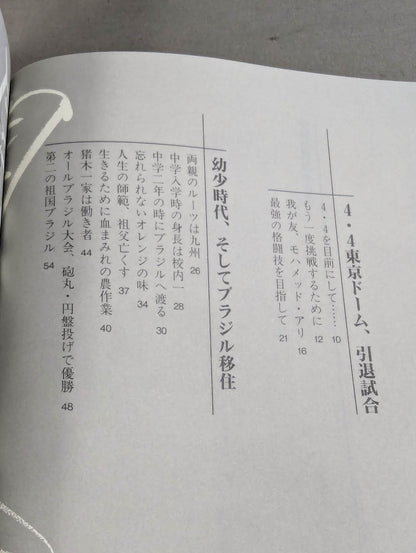 4・4東京ドーム、引退試合
4・4を目前にして…… 10
もう一度挑戦するために 12
我が友、モハメッド・アリ 16
最強の格闘技を目指して 21
幼少時代、そしてブラジル移住
両親のルーツは九州 26
中学入学時の身長は校内一 28
中学二年の時にブラジルへ渡る 30
忘れられないオレンジの味 34
人生の師範、祖父亡くす 37
生きるために血まみれの農作業 40
猪木一家は働き者 44
オールブラジル大会、砲丸・円盤投げで優勝 48
第二の祖国ブラジル 54